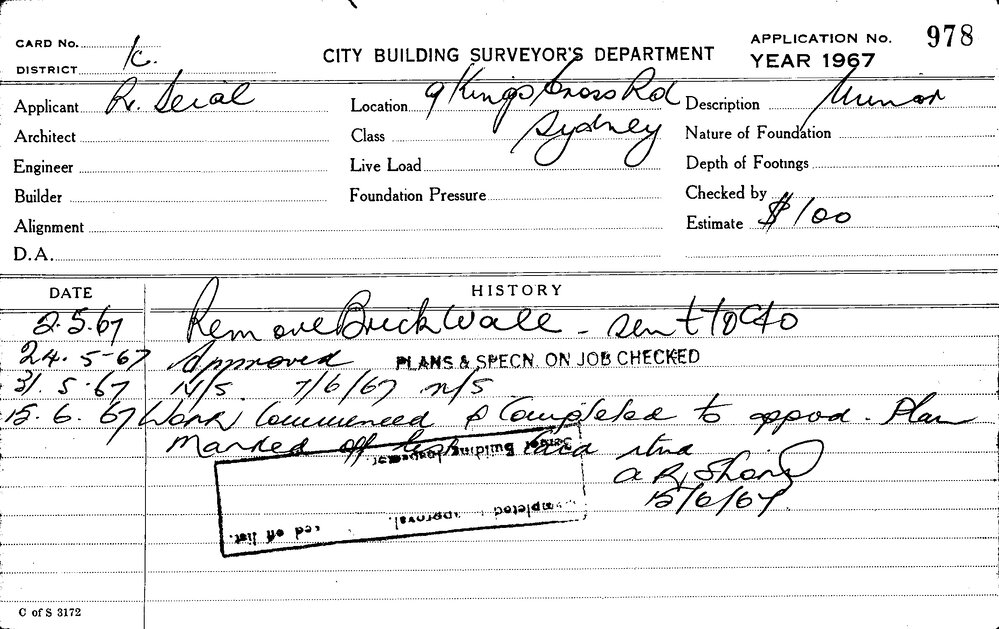 CARD No.
DISTRICT K.
CITY BUILDING SURVEYOR'S DEPARTMENT
APPLICATION No. 978
YEAR 1967
Applicant R. Seral
Location 9 Kings Cross Rd
Sydney
Description Minor
Architect
Class
Nature of Foundation
Engineer
Live Load
Depth of Footings
Builder
Foundation Pressure
Checked by
Alignment
Estimate $100
D.A.
DATE
HISTORY
2.5.67 Remove Brick Wall - sent to
24.5-67 Approved PLANS & SPECN. ON JOB CHECKED
31.5.67 N/S. 7/6/67 N/S
15.6.67 Work Commenced & Completed to appod. Plan
Marked off
15/6/67
Senior Building Inspector.
approval.
off list.
C of S 3172